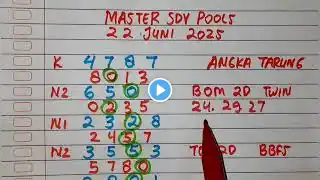 MASTER SDY POOLS
22 JUNI 2025
K 4 7 8 7 ANGKA TARUNG
8 0 1 3
N2 6 5 0 BOM 2D TWIN
0 2 3 5 24. 29. 27
N1 2 3 2 8
2 4 5 7
N2 3 5 5 3 2D BBFS
5 7 8 0